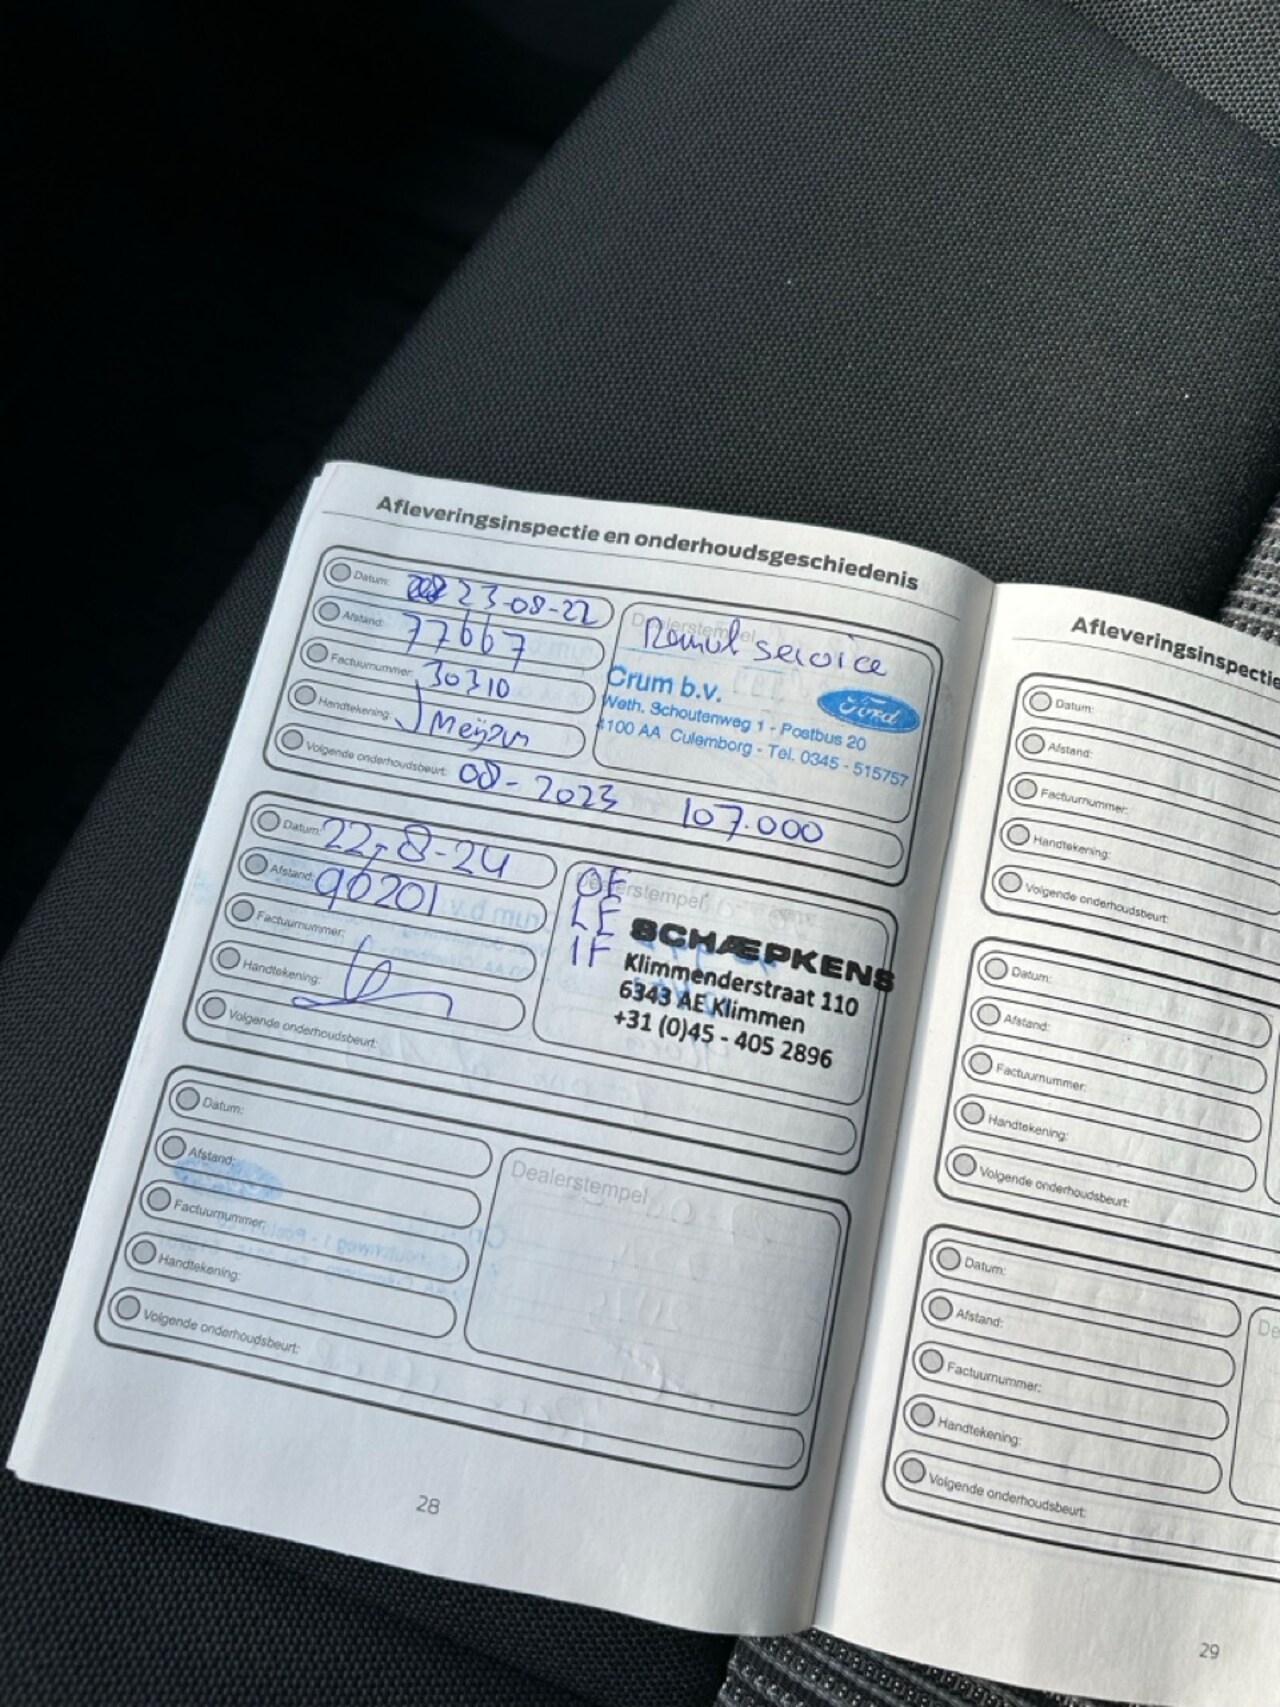 Afleveringsinspectie en onderhoudsgeschiedenis
Datum: 23-08-22
Afstand: 77667
Factuurnummer: 30310
Handtekening:
Volgende onderhoudsbeurt: 08-2023 107.000
Dealerstempel
service
Crum b.v.
Ford
Weth. Schoutenweg 1 - Postbus 20
4100 AA Culemborg - Tel. 0345 - 515757
Datum: 22-8-24
Afstand: 90201
Factuurnummer:
Handtekening:
Volgende onderhoudsbeurt:
Dealerstempel
OF
LF
IF
SCHÆPKENS
Klimmenderstraat 110
6343 AE Klimmen
+31 (0)45 - 405 2896
Datum:
Afstand:
Factuurnummer:
Handtekening:
Volgende onderhoudsbeurt:
Dealerstempel
28
Afleveringsinspectie
Datum:
Afstand:
Factuurnummer:
Handtekening:
Volgende onderhoudsbeurt:
Datum:
Afstand:
Factuurnummer:
Handtekening:
Volgende onderhoudsbeurt:
Datum:
Afstand:
Factuurnummer:
Handtekening:
Volgende onderhoudsbeurt:
De
29